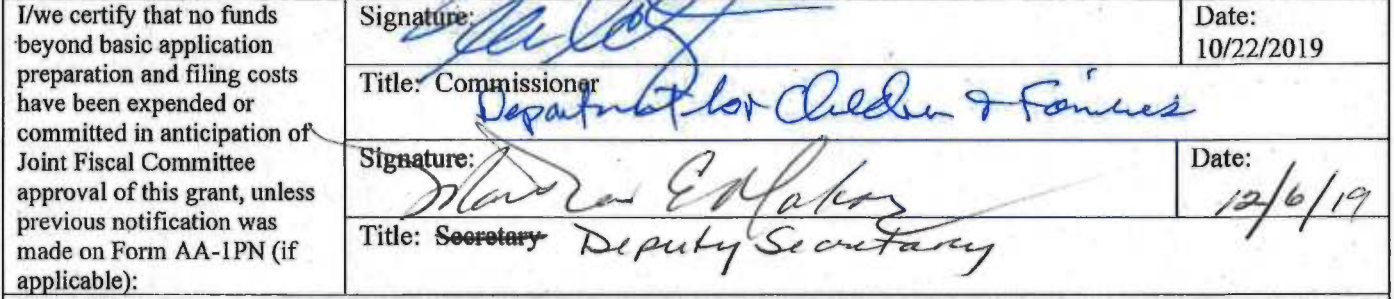 I/we certify that no funds
beyond basic application
preparation and filing costs
have been expended or
committed in anticipation of
Joint Fiscal Committee
approval of this grant, unless
previous notification was
made on Form AA-1PN (if
applicable):
Signature:
Date:
10/22/2019
Title: Commissioner
Department for Children & Families
Signature:
Date:
12/6/19
Title: Secretary Deputy Secretary